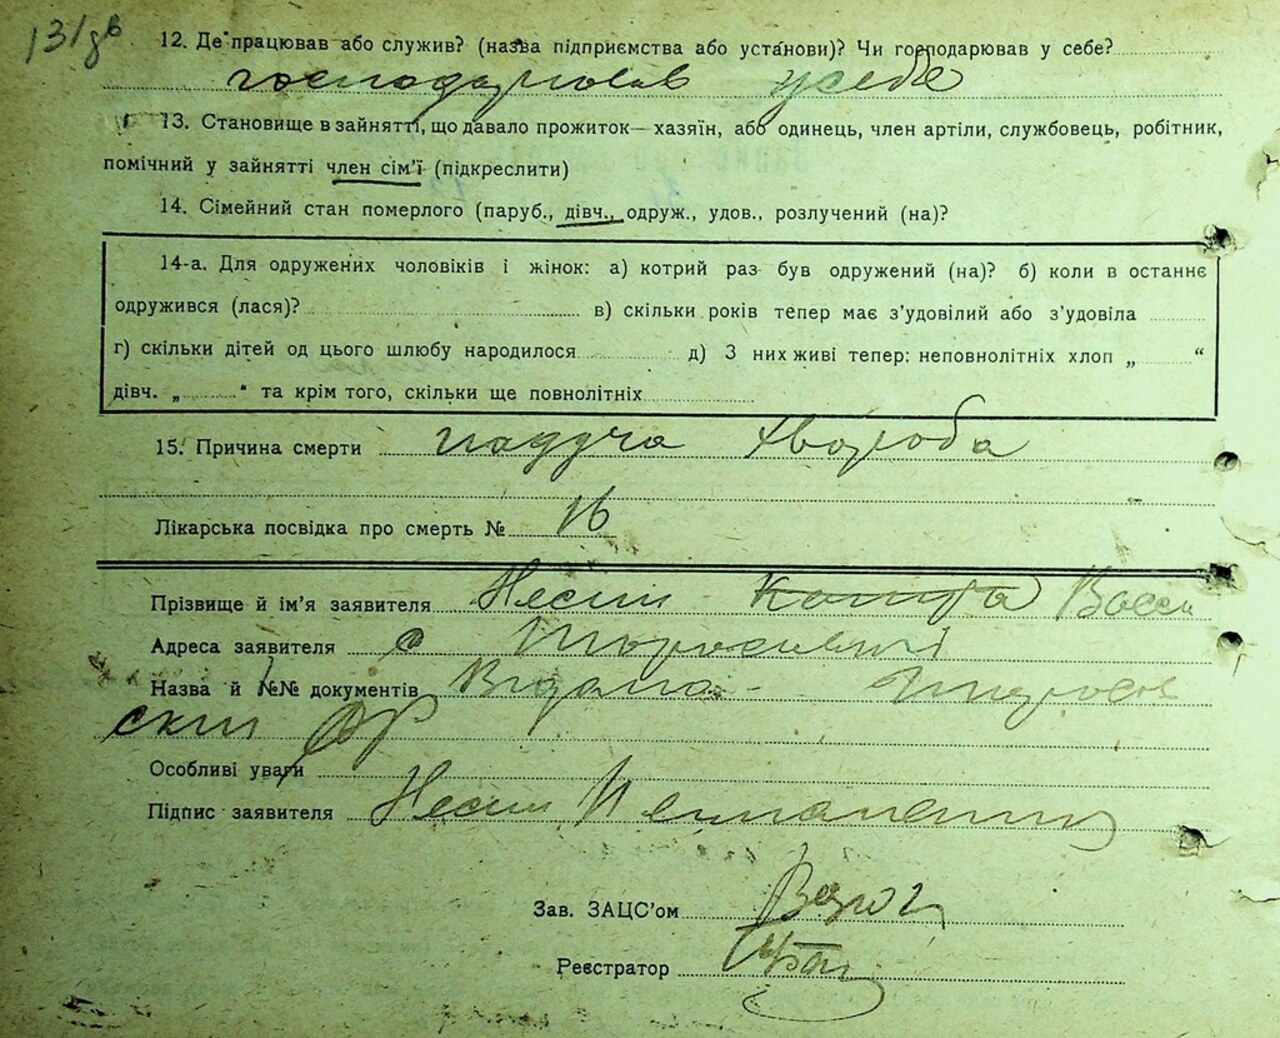 12. Де працював або служив? (назва підприємства або установи)? Чи господарював у себе?
господарював у себе
13. Становище в зайнятті, що давало прожиток—хазяїн, або одинець, член артіли, службовець, робітник,
помічний у зайнятті член сім'ї (підкреслити)
14. Сімейний стан померлого (паруб., дівч., одруж., удов., розлучений (на)?
14-а. Для одружених чоловіків і жінок: а) котрий раз був одружений (на)? б) коли в останнє
одружився (лася)? в) скільки років тепер має з'удовілий або з'удовіла
г) скільки дітей од цього шлюбу народилося д) З них живі тепер: неповнолітніх хлоп „ “
дівч. „ “ та крім того, скільки ще повнолітніх
15. Причина смерти падуча хвороба
Лікарська посвідка про смерть № 16
Прізвище й ім'я заявителя Несин
Адреса заявителя с
Назва й №№ документів Видана
Особливі уваги
Підпис заявителя Несин
Зав. ЗАЦС'ом
Реєстратор